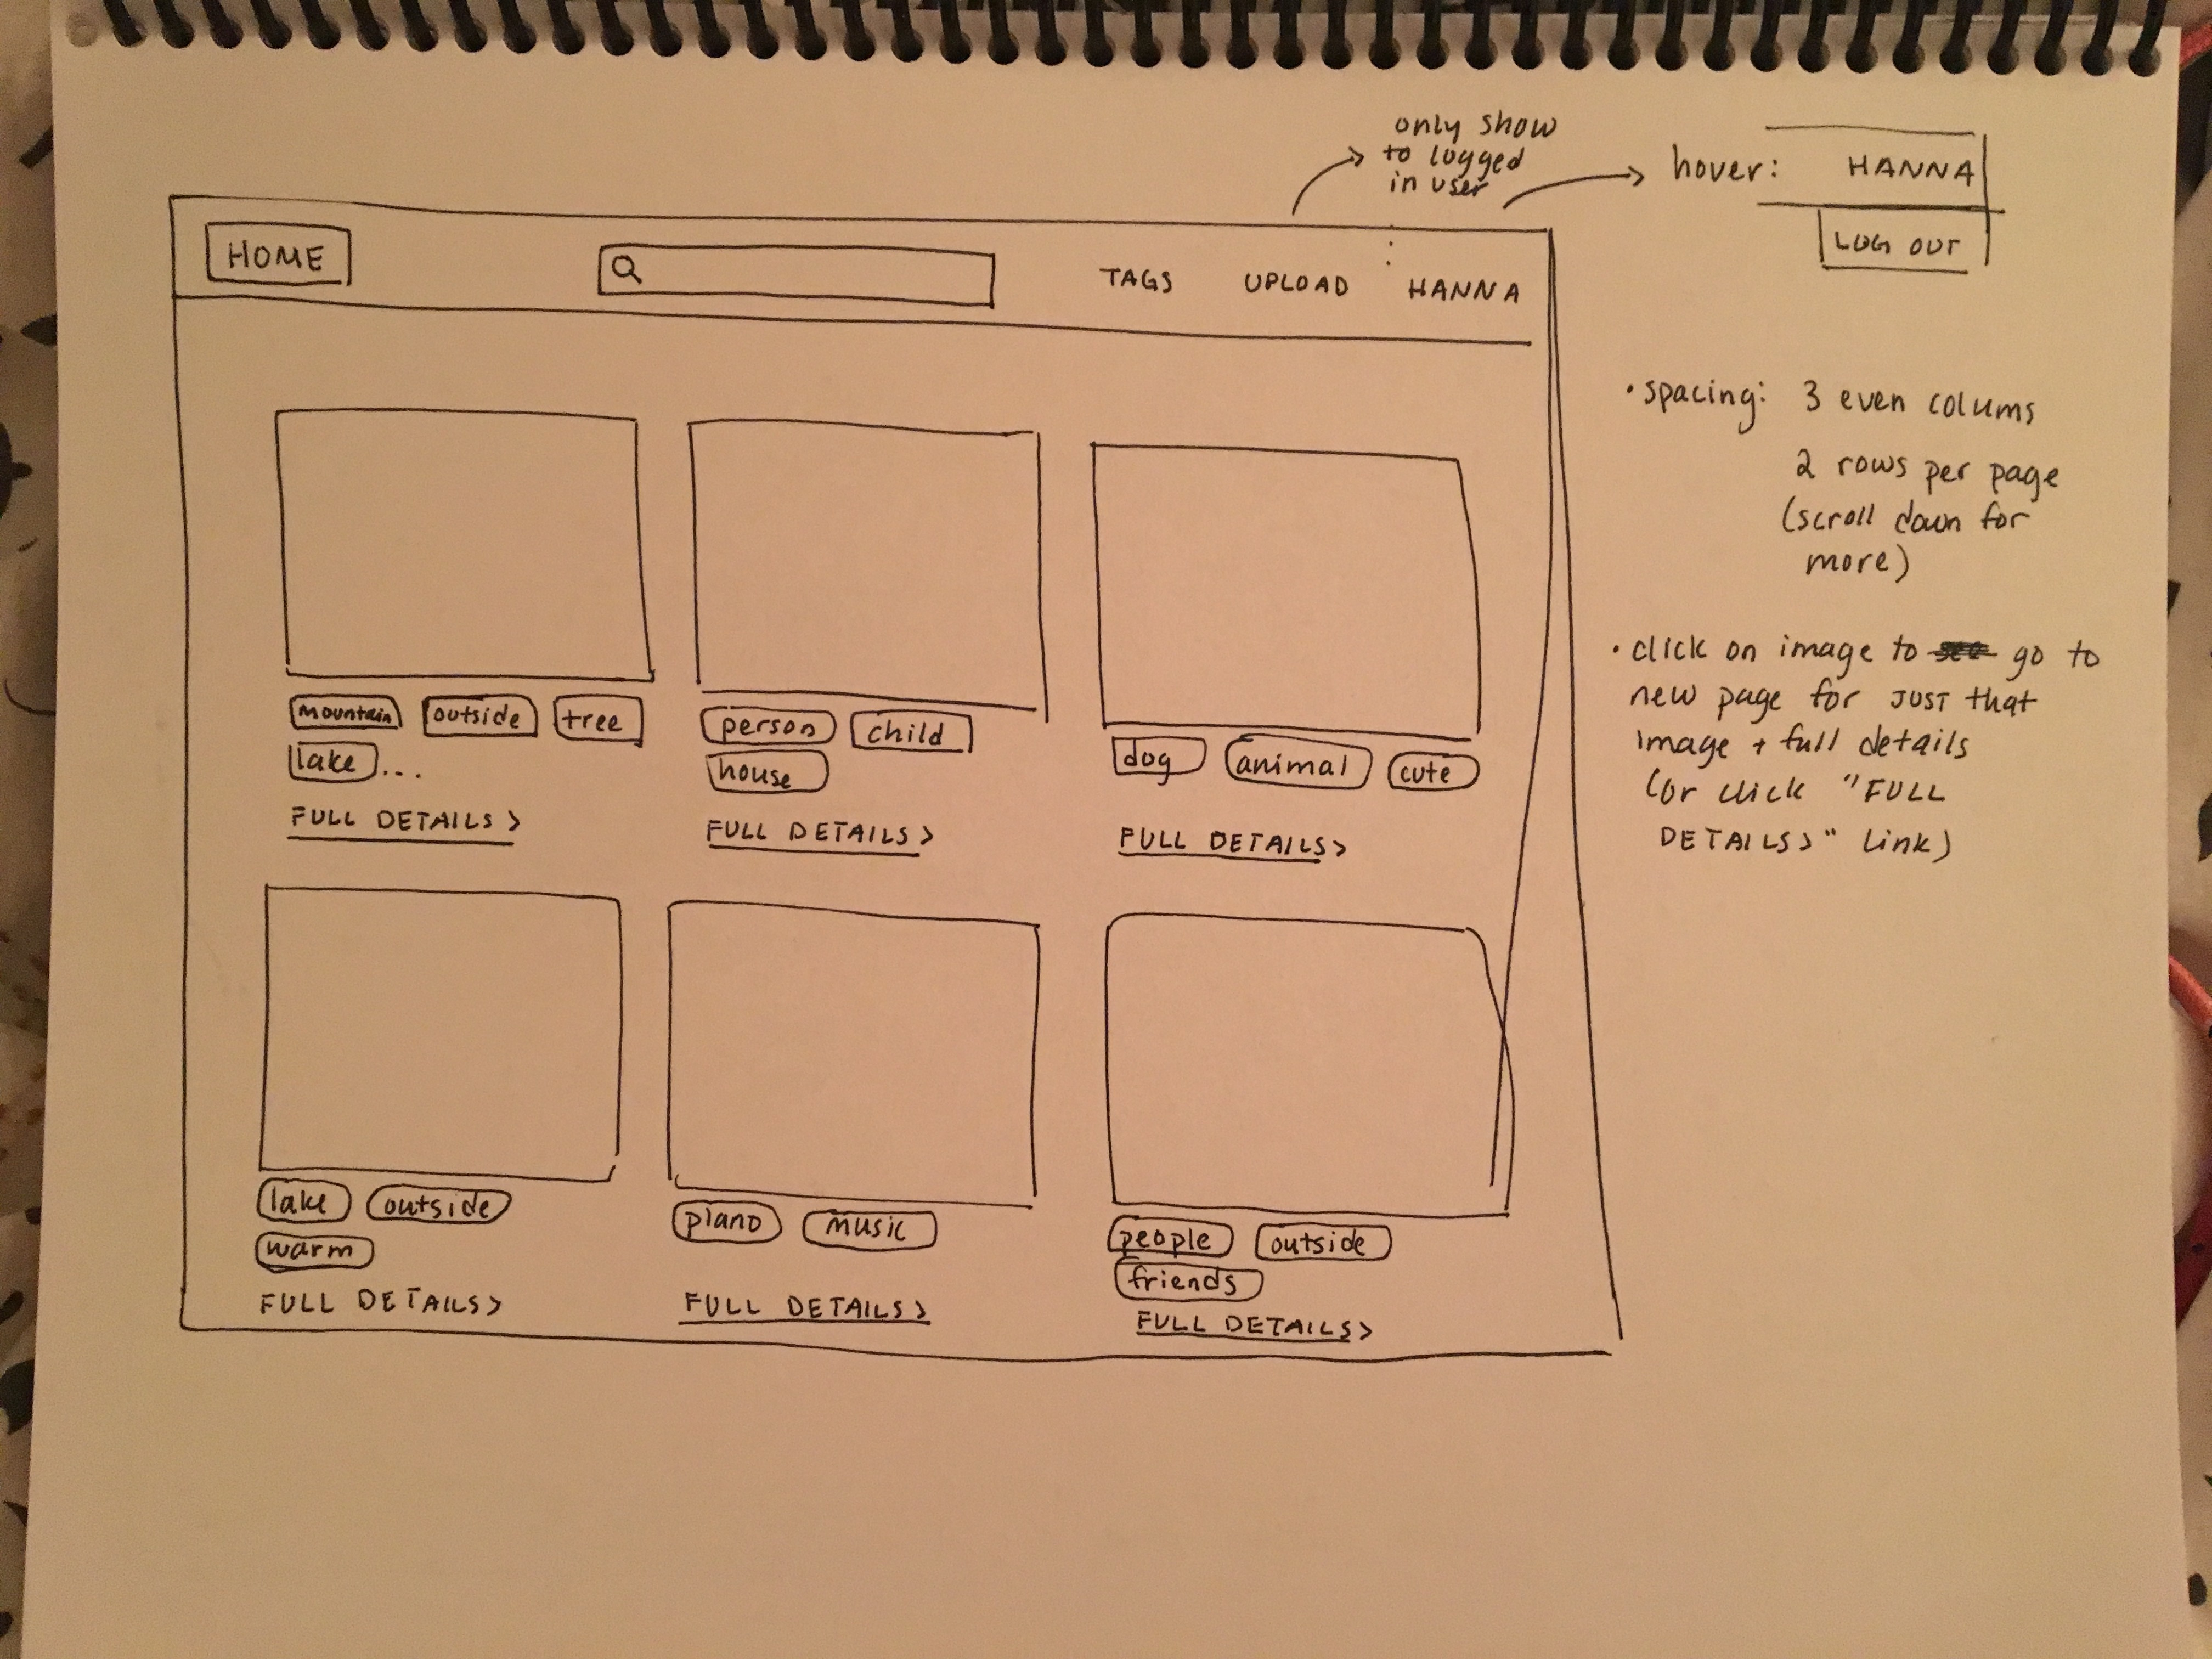 only show
to logged
in user
hover: HANNA
LOG OUT
HOME
TAGS UPLOAD HANNA
mountain outside tree
lake ...
FULL DETAILS >
person child
house
FULL DETAILS >
dog animal cute
FULL DETAILS >
lake outside
warm
FULL DETAILS >
piano music
FULL DETAILS >
people outside
friends
FULL DETAILS >
• spacing: 3 even colums
2 rows per page
(scroll down for
more)
• click on image to go to
new page for JUST that
image + full details
(or click "FULL
DETAILS >" link)